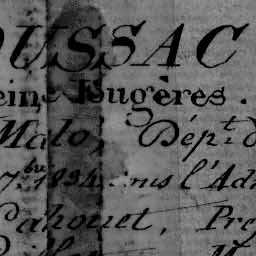 OUSSAC
eine Bugères.
Malo, Dép.t d
7.bre 1834. dans l'Ad
Dahouet, Pré